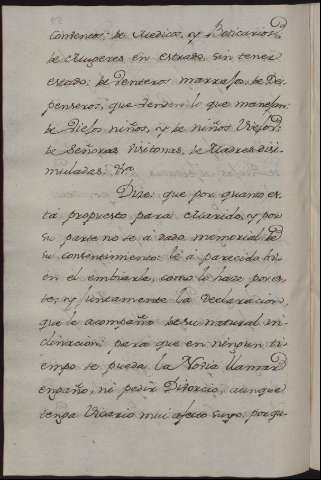 contento; de Medico, y Boticario;
de Mugeres en estrado, sin tener
estado; de Dentero marrajo, de Des-
pensero, que venden lo que manejan;
de Viejos niños, y de niños Viejos;
de Señoras visitonas, de Madres disi-
muladas. &a.
Dize: que por quanto es-
tá propuesto para Marido, y por
su parte no se á dado memorial de
su consentimiento: le á parecido bi-
en el embiarle, como lo haze por es-
te, y juntamente la Declaración,
que le acompaña de su natural in-
clinacion; para que en ningun ti-
empo se pueda la Novia llamar
engaño, ni pedir Divorcio, aunque
tenga Vicario mui afecto suyo, porque